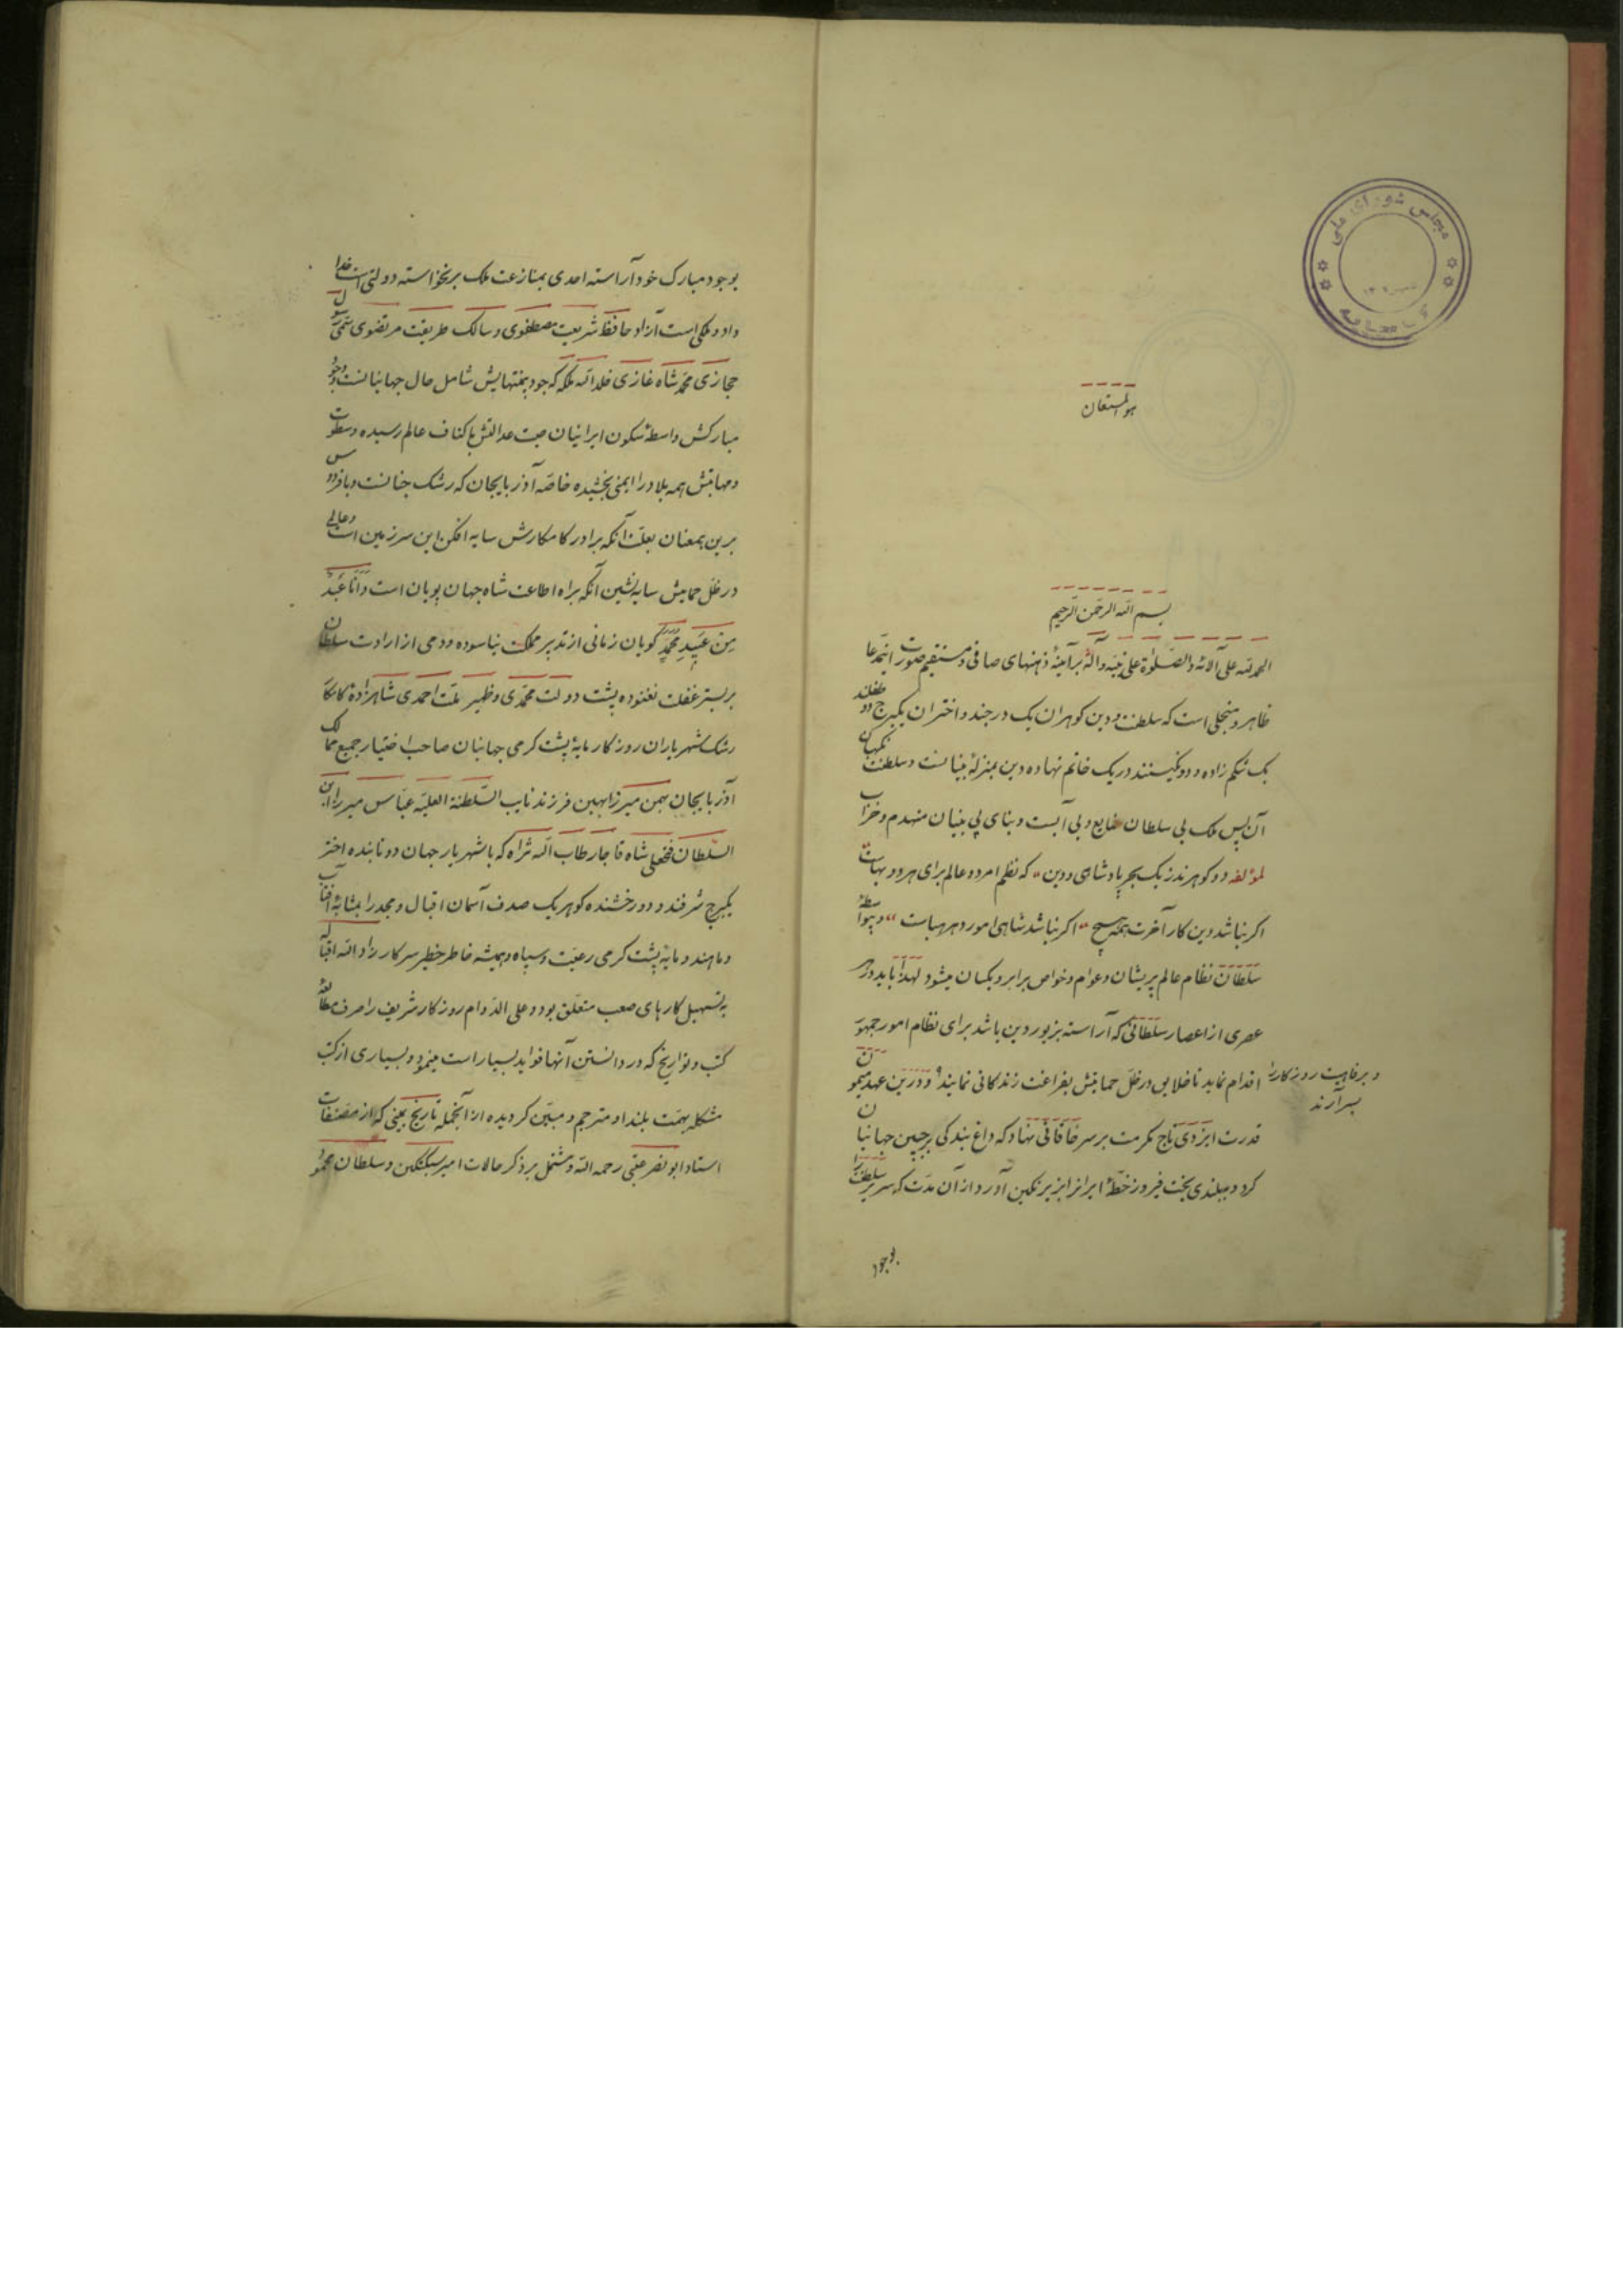 مجلس شورای ملی
کتابخانه
هو المستعان
بسم الله الرحمن الرحیم
الحمد لله علی آلائه و الصلوة علی نبیه و آله بر آینهٔ ذهنهای صافی و مستقیم صورت این مدعا
ظاهر و منجلی است که سلطنت و دین کوهران یک درجند و اختران یکبرج دو طفلند
یک شکم زاده و دو نکینند در یک خاتم نهاده دین بمنزلهٔ بنیانست و سلطنت نکهبان
آن پس ملک بی سلطان ضایع و بی آبست و بنای بی بنیان منهدم و خراب
لمؤلفه دو کوهرند ز یک بحر پادشاهی و دین که نظم امر دو عالم برای هر دو بپاست
اکر نباشد دین کار آخرت همه هیچ اکر نباشد شاهی امور دهر هباست و بیواسطهٔ
سلطان نظام عالم پریشان و عوام و خواص برابر و یکسان میشود لهذا باید در هر
عصری از اعصار سلطانی که آراسته بزیور دین باشد برای نظام امور جمهور
اقدام نماید تا خلایق در ظل حمایتش بفراغت زندکانی نمایند و درین عهد میمون
و برفاهیت روزکار را
بسر آرند
قدرت ایزدی تاج مکرمت بر سر خاقانی نهاد که داغ بندکی بر جبین جهانیان
کرد و ببلندی بخت فیروز خطهٔ ایران را بزیر نکین آورد از آن مدت که سریر سلطنت را
بوجود
بوجود مبارک خود آراسته احدی بمنازعت ملک برنخواسته دولتی است خدا
داد و ملکی است آزاد حافظ شریعت مصطفوی و سالک طریقت مرتضوی سمی رسول
حجازی محمد شاه غازی خلد الله ملکه که جود بیمنتهایش شامل حال جهانیانست و وجود
مبارکش واسطهٔ سکون ایرانیان صیت عدالتش باکناف عالم رسیده و سطوت
و مهابتش همه بلاد را ایمنی بخشیده خاصه آذربایجان که رشک جنانست و با فردوس
برین همعنان بعلت آنکه برادر کامکارش سایه افکن این سرزمین است و عالمی
در ظل حمایتش سایه نشین آنکه براه اطاعت شاه جهان پویان است و انا عبد
من عبید محمد کویان زمانی از تدبیر مملکت نیاسوده و دمی از ارادت سلطان
بر بستر غفلت نغنوده پشت دولت محمدی و ظهیر ملت احمدی شاهزادهٔ کامکار
رشک شهریاران روزکار مایهٔ پشت کرمی جهانیان صاحب اختیار جمیع ممالک
آذربایجان بهمن میرزا بهین فرزند نایب السلطنة العلیه عباس میرزا ابن
السلطان فتحعلی شاه قاجار طاب الله ثراه که با شهریار جهان دو تابنده اختر
یکبرج شرفند و دو رخشنده کوهر یک صدف آسمان اقبال و مجد را بمثابهٔ آفتاب
و ماهند و مایهٔ پشت کرمی رعیت و سپاه و همیشه خاطر خطیر سرکار زاد الله اقباله
به تسهیل کارهای صعب متعلق بود و علی الدوام روزکار شریف را صرف مطالعهٔ
کتب و تواریخ که در دانستن آنها فواید بسیار است مینمود و بسیاری از کتب
مشکله بهمت بلند او مترجم و مبین کردیده از آنجمله تاریخ یمینی که از مصنفات
استاد ابو نصر عتبی رحمه الله و مشتمل بر ذکر حالات امیر سبکتکین و سلطان محمود